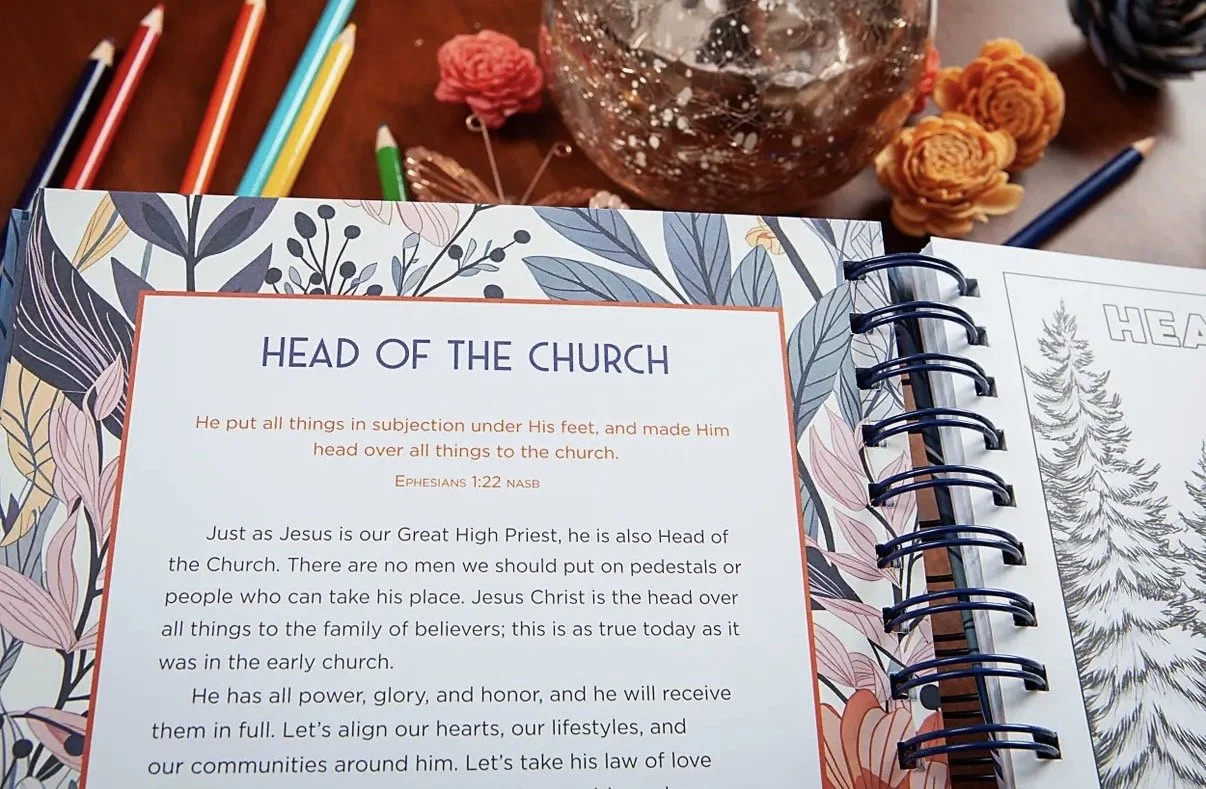 HEAD OF THE CHURCH
He put all things in subjection under His feet, and made Him
head over all things to the church.
EPHESIANS 1:22 NASB
Just as Jesus is our Great High Priest, he is also Head of
the Church. There are no men we should put on pedestals or
people who can take his place. Jesus Christ is the head over
all things to the family of believers; this is as true today as it
was in the early church.
He has all power, glory, and honor, and he will receive
them in full. Let's align our hearts, our lifestyles, and
our communities around him. Let's take his law of love